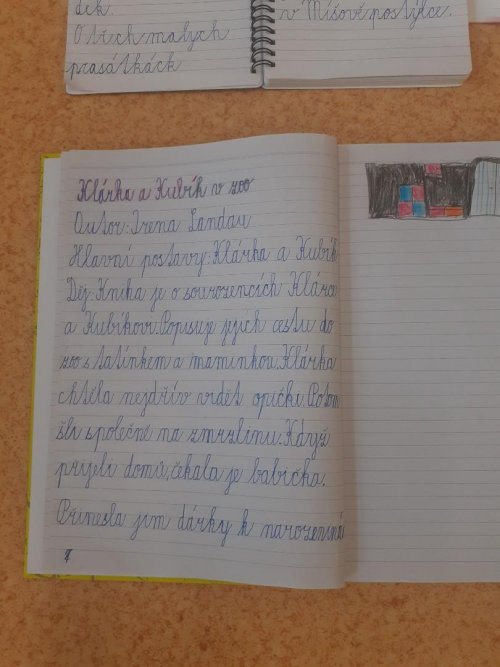 dek.
O třech malých
prasátkách
v Míšově postýlce.
Klárka a Kubík v zoo
Autor: Irena Landau
Hlavní postavy: Klárka a Kubík
Děj: Kniha je o sourozencích Klárce
a Kubíkovi. Popisuje jejich cestu do
zoo s tatínkem a maminkou. Klárka
chtěla nejdřív vidět opičky. Potom
šli společně na zmrzlinu. Když
přijeli domů, čekala je babička.
Přinesla jim dárky k narozeniná